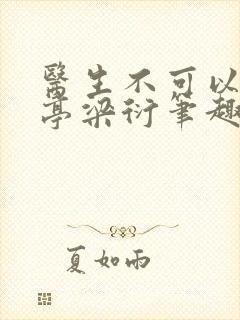 醫生不可以
亭梁衍筆趣
夏如雨